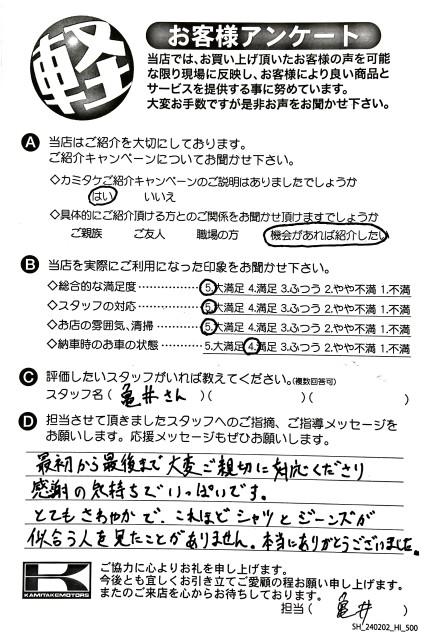 軽
お客様アンケート
当店では、お買い上げ頂いたお客様の声を可能
な限り現場に反映し、お客様により良い商品と
サービスを提供する事に努めています。
大変お手数ですが是非お声をお聞かせ下さい。
A 当店はご紹介を大切にしております。
ご紹介キャンペーンについてお聞かせ下さい。
◇カミタケご紹介キャンペーンのご説明はありましたでしょうか
はい いいえ
◇具体的にご紹介頂ける方とのご関係をお聞かせ頂けますでしょうか
ご親族 ご友人 職場の方 機会があれば紹介したい
B 当店を実際にご利用になった印象をお聞かせ下さい。
◇総合的な満足度 ………………… 5.大満足 4.満足 3.ふつう 2.やや不満 1.不満
◇スタッフの対応 ………………… 5.大満足 4.満足 3.ふつう 2.やや不満 1.不満
◇お店の雰囲気、清掃 …………… 5.大満足 4.満足 3.ふつう 2.やや不満 1.不満
◇納車時のお車の状態 …………… 5.大満足 4.満足 3.ふつう 2.やや不満 1.不満
C 評価したいスタッフがいれば教えてください。(複数回答可)
スタッフ名( 亀井さん )( )( )
D 担当させて頂きましたスタッフへのご指摘、ご指導メッセージを
お願いします。応援メッセージもぜひお願いします。
最初から最後まで大変ご親切に対応くださり
感謝の気持ちでいっぱいです。
とてもさわやかで、これほどシャツとジーンズが
似合う人を見たことがありません。本当にありがとうございました。
K
KAMITAKEMOTORS
ご協力に心よりお礼を申し上げます。
今後とも宜しくお引き立てご愛顧の程お願い申し上げます。
またのご来店を心からお待ちしております。
担当( 亀井 )
SH_240202_HI_500